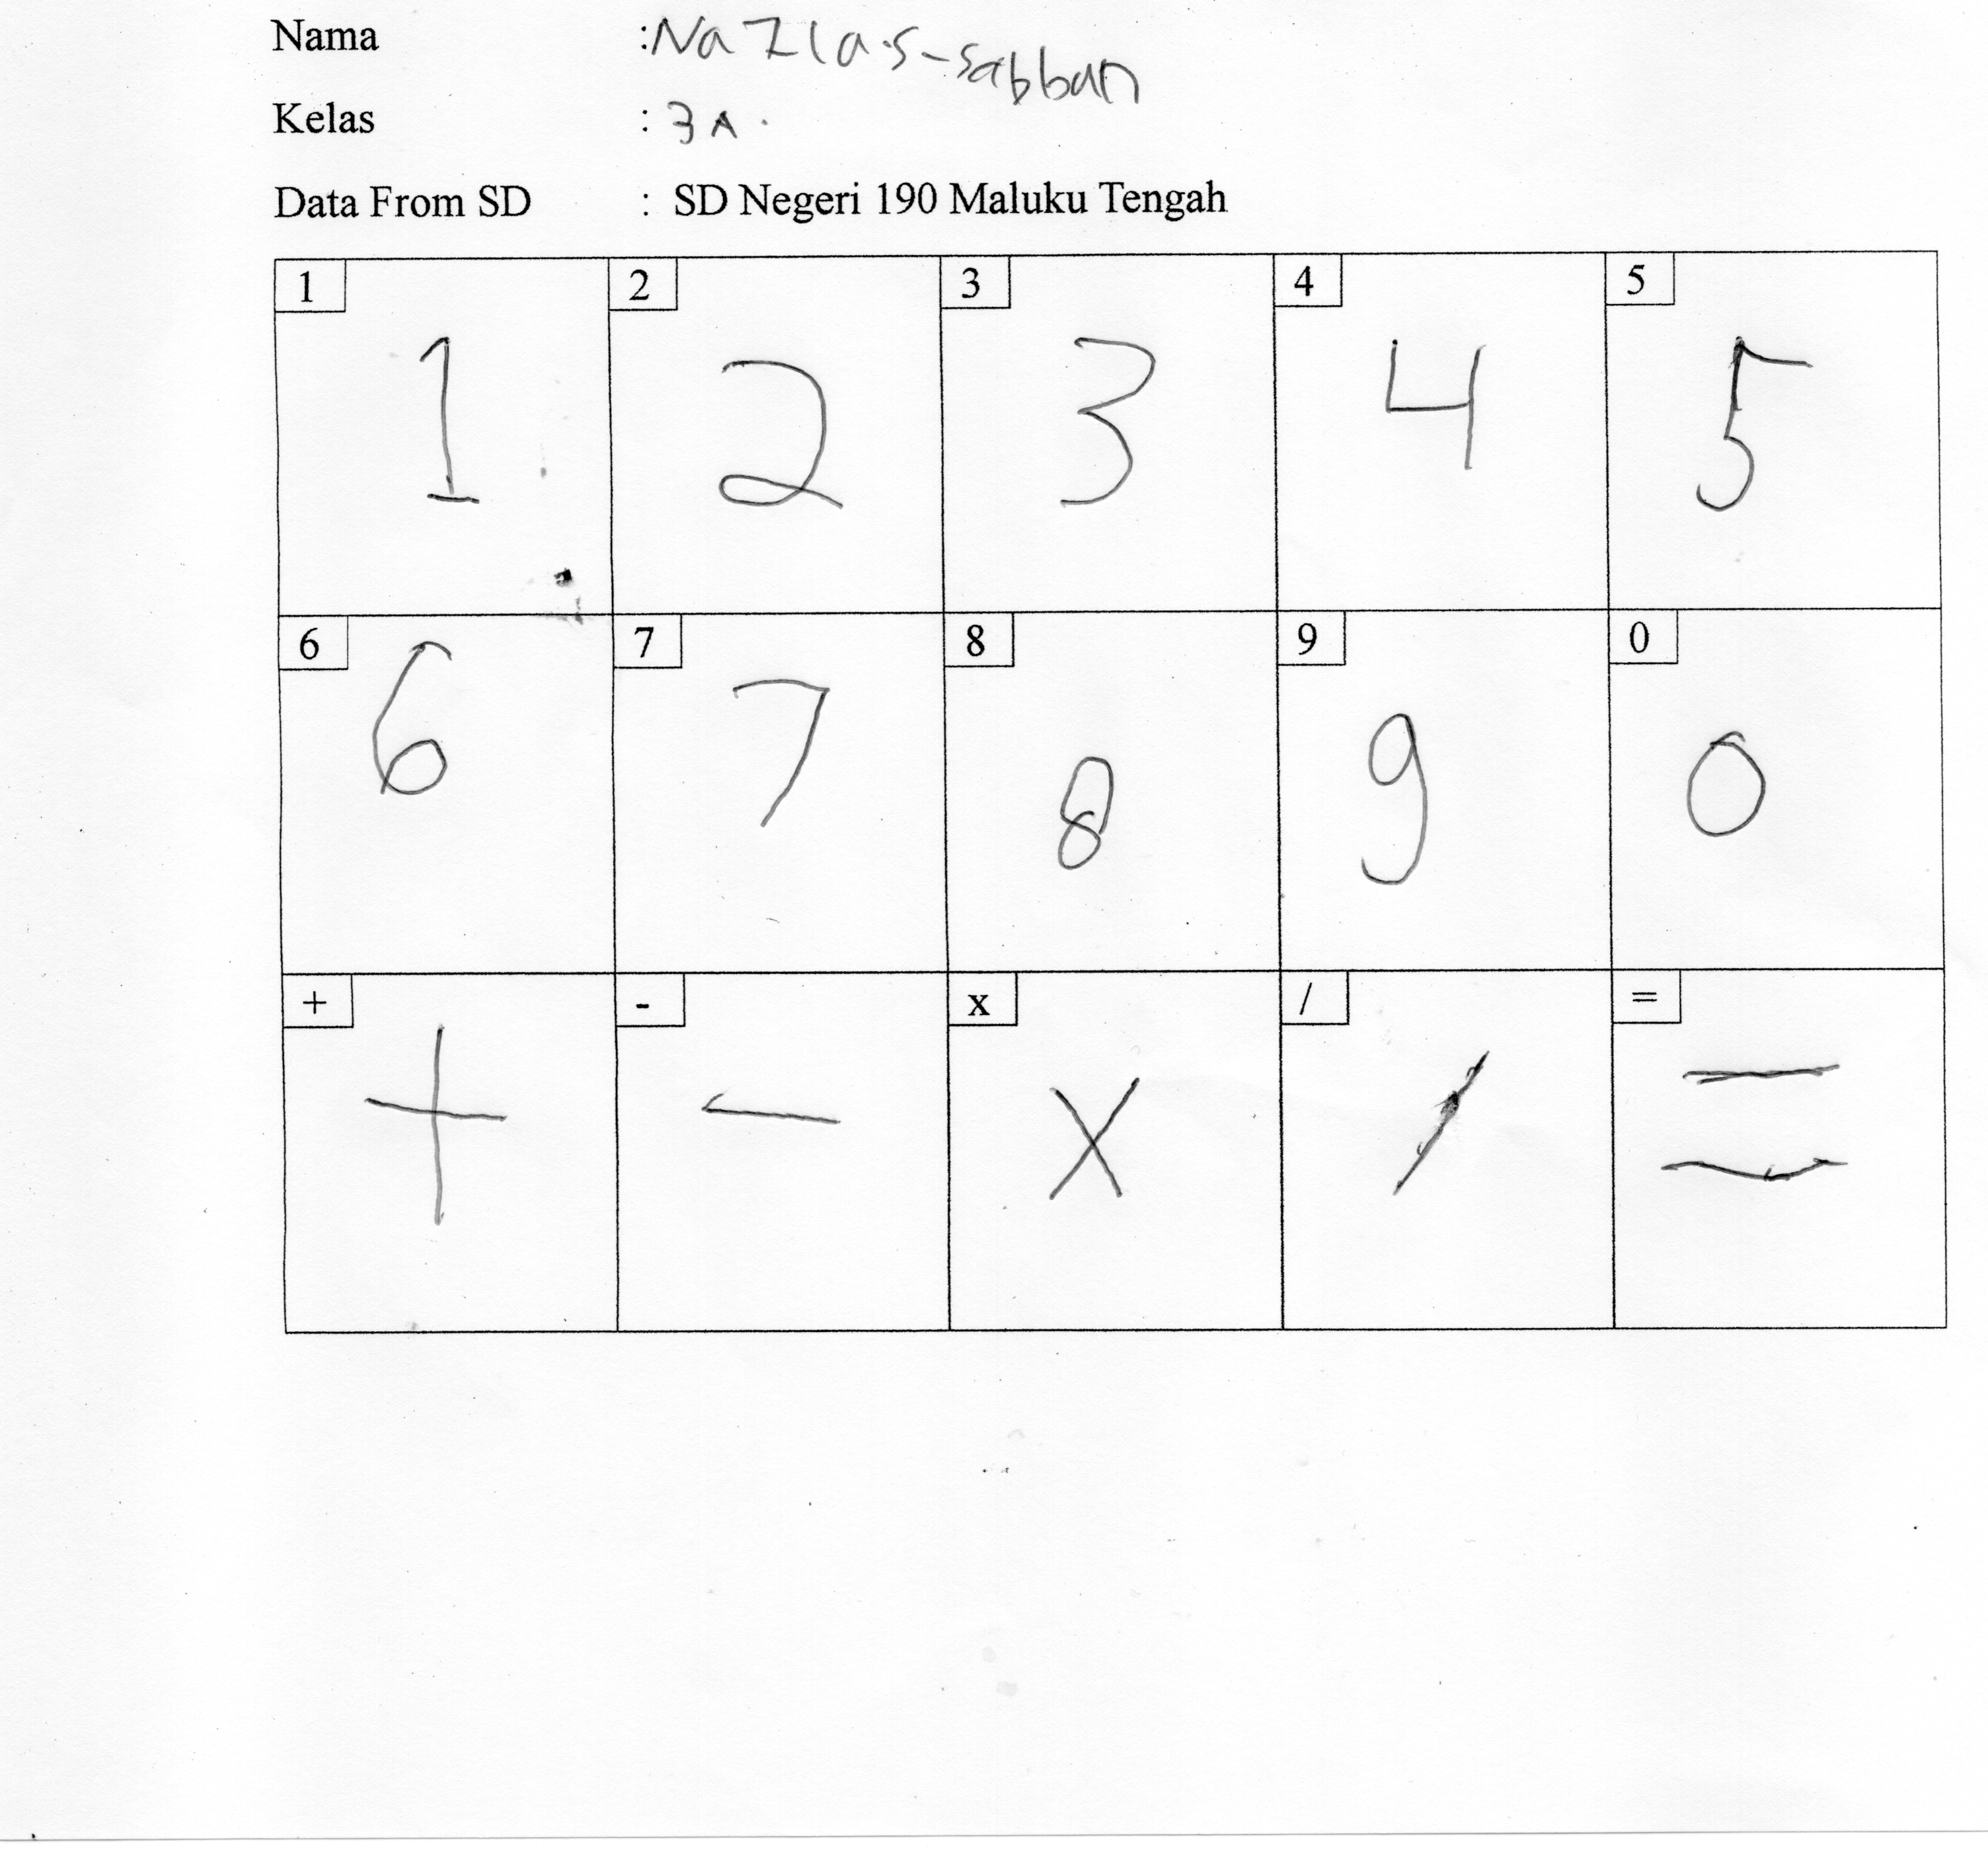 Nama : Nazla.S-Sabban
Kelas : 3A.
Data From SD : SD Negeri 190 Maluku Tengah
1 2 3 4 5
1 2 3 4 5
6 7 8 9 0
6 7 8 9 0
+ - x / =
+ - x / =